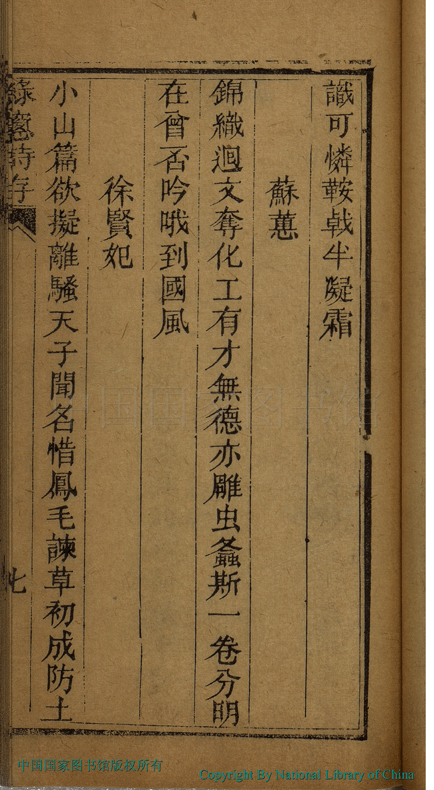 識可憐鞍戟半凝霜
蘇蕙
錦織迴文奪化工有才無德亦雕虫螽斯一卷分明
在曾否吟哦到國風
徐賢妃
小山篇欲擬離騷天子聞名惜鳳毛諫草初成防土
綠窻詩存
七
中國国家图书馆版权所有
Copyright By National Library of China